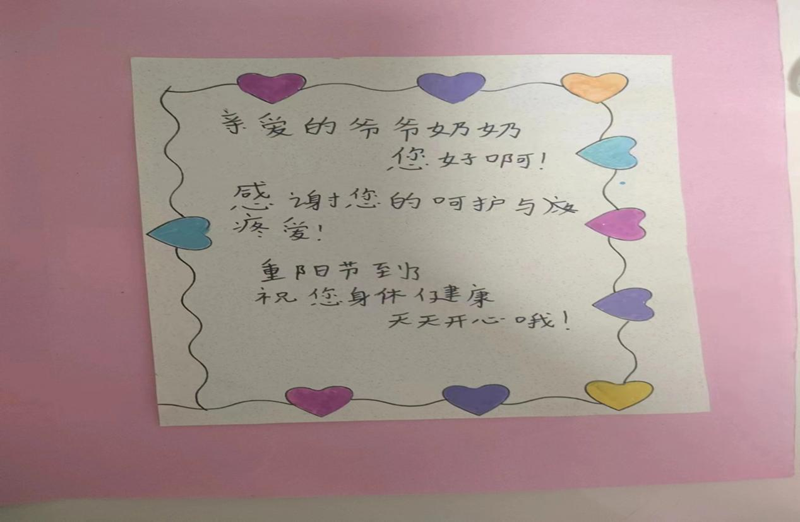 亲爱的爷爷奶奶
您好啊!
感谢您的呵护与
疼爱!
重阳节到了
祝您身体健康
天天开心哦!